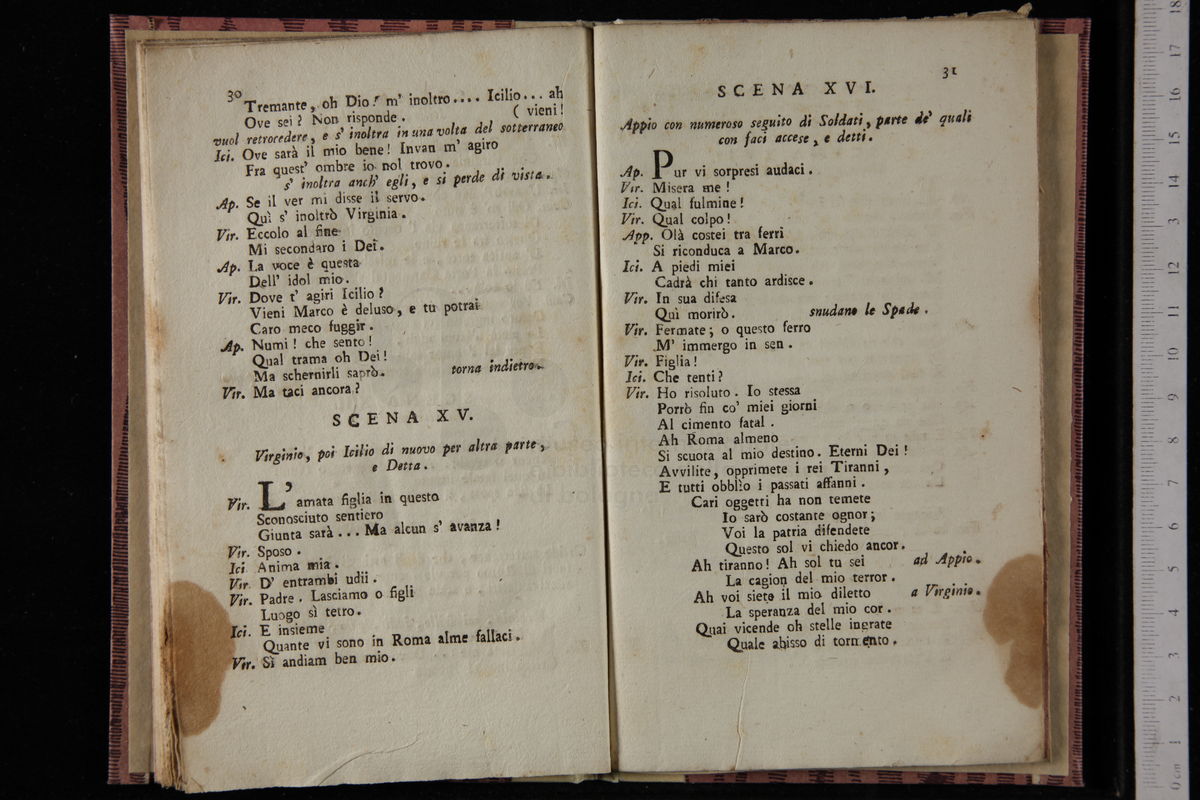 30
Tremante, oh Dio! m' inoltro.... Icilio... ah
Ove sei? Non risponde. ( vieni!
vuol retrocedere, e s' inoltra in una volta del sotterraneo
Ici. Ove sarà il mio bene! Invan m' agiro
Fra quest' ombre io nol trovo.
s' inoltra anch' egli, e si perde di vista.
Ap. Se il ver mi disse il servo.
Quì s' inoltrò Virginia.
Vir. Eccolo al fine
Mi secondaro i Dei.
Ap. La voce è questa
Dell' idol mio.
Vir. Dove t' agiri Icilio?
Vieni Marco è deluso, e tu potrai
Caro meco fuggir.
Ap. Numi! che sento!
Qual trama oh Dei!
Ma schernirli saprò. torna indietro.
Vir. Ma taci ancora?
SCENA XV.
Virginio, poi Icilio di nuovo per altra parte,
e Detta.
Vir. L' amata figlia in questo
Sconosciuto sentiero
Giunta sarà... Ma alcun s' avanza!
Vir. Sposo.
Ici. Anima mia.
Vir. D' entrambi udii.
Vir. Padre. Lasciamo o figli
Luogo sì tetro.
Ici. E insieme
Quante vi sono in Roma alme fallaci.
Vir. Sì andiam ben mio.
31
SCENA XVI.
Appio con numeroso seguito di Soldati, parte de' quali
con faci accese, e detti.
Ap. Pur vi sorpresi audaci.
Vir. Misera me!
Ici. Qual fulmine!
Vir. Qual colpo!
App. Olà costei tra ferri
Si riconduca a Marco.
Ici. A piedi miei
Cadrà chi tanto ardisce.
Vir. In sua difesa
Quì morirò. snudano le Spade.
Vir. Fermate; o questo ferro
M' immergo in sen.
Vir. Figlia!
Ici. Che tenti?
Vir. Ho risoluto. Io stessa
Porrò fin co' miei giorni
Al cimento fatal.
Ah Roma almeno
Si scuota al mio destino. Eterni Dei!
Avvilite, opprimete i rei Tiranni,
E tutti obblìo i passati affanni.
Cari oggetti ha non temete
Io sarò costante ognor;
Voi la patria difendete
Questo sol vi chiedo ancor.
Ah tiranno! Ah sol tu sei ad Appio.
La cagion del mio terror.
Ah voi siete il mio diletto a Virginio.
La speranza del mio cor.
Quai vicende oh stelle ingrate
Quale abisso di tormento.